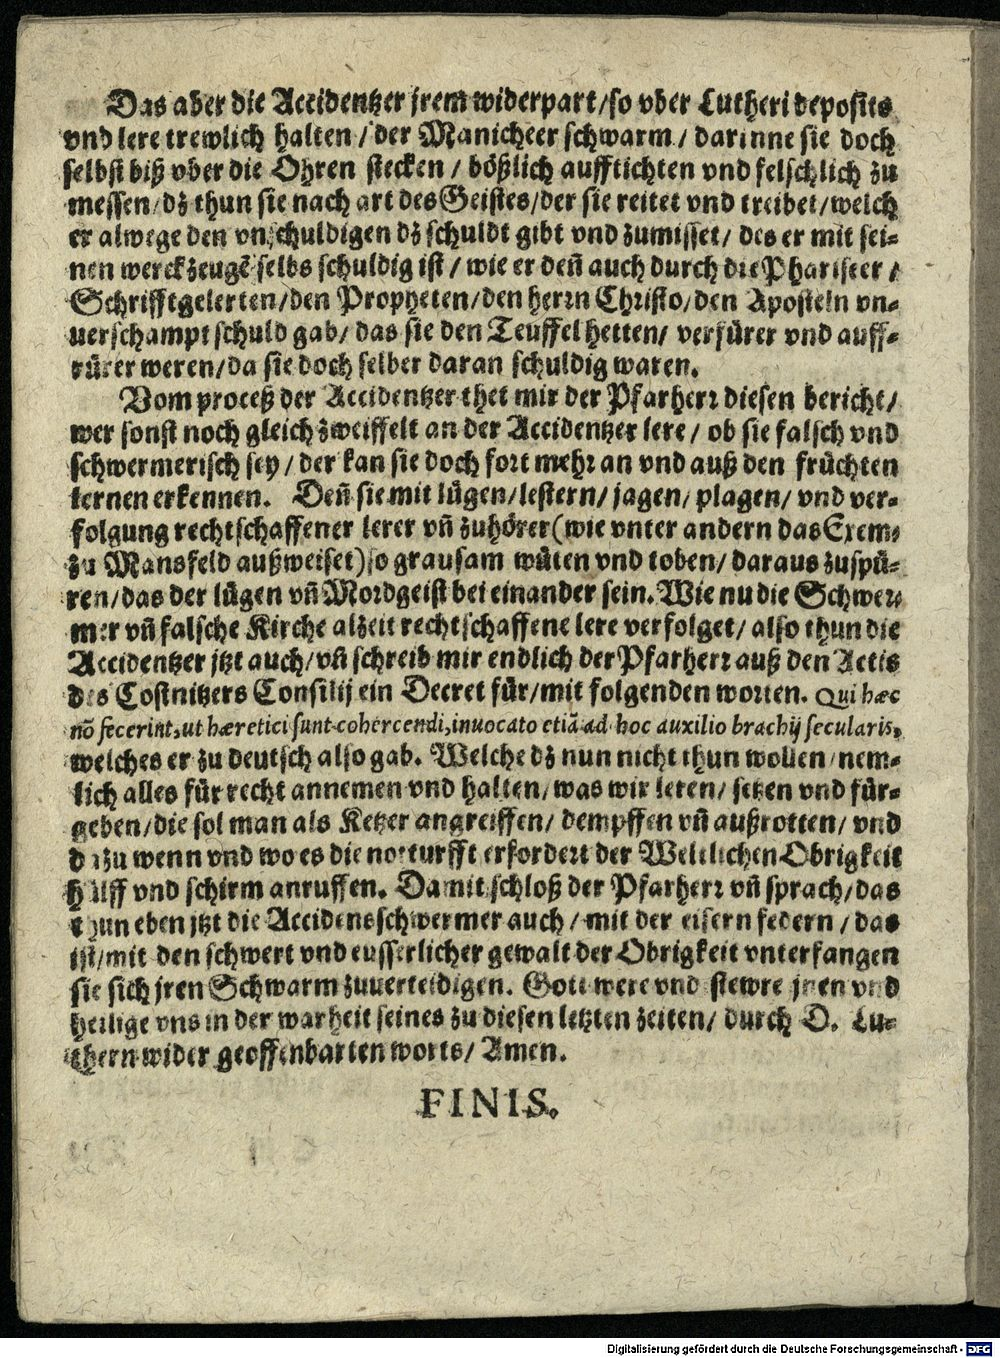 Das aber die Accidentzer jrem widerpart/so vber Lutheri deposito
vnd lere trewlich halten/der Manicheer schwarm/darinne sie doch
selbst biß vber die Ohren stecken/bößlich aufftichten vnd felschlich zu
messen/dz thun sie nach art des Geistes/der sie reitet vnd treibet/welch
er alwege den vnschuldigen dz schuldt gibt vnd zumisset/des er mit sei-
nen werckzeugẽ selbs schuldig ist/wie er deñ auch durch die Phariseer/
Schrifftgelerten/den Propheten/den herrn Christo/den Aposteln vn-
uerschampt schuld gab/das sie den Teuffel hetten/verfürer vnd auff-
rürer weren/da sie doch selber daran schuldig waren.
Vom proceß der Accidentzer thet mir der Pfarherr diesen bericht/
wer sonst noch gleich zweiffelt an der Accidentzer lere/ob sie falsch vnd
schwermerisch sey/der kan sie doch fort mehr an vnd auß den früchten
lernen erkennen. Deñ sie mit lügen/lestern/jagen/plagen/vnd ver-
folgung rechtschaffener lerer vñ zuhörer(wie vnter andern das Exem:
zu Mansfeld außweiset)so grausam wüten vnd toben/daraus zuspü-
ren/das der lügen vñ Mordgeist bei einander sein. Wie nu die Schwer-
mer vñ falsche Kirche alzeit rechtschaffene lere verfolget/also thun die
Accidentzer jtzt auch/vñ schreib mir endlich der Pfarherr auß den Actis
des Costnitzers Consilij ein Decret für/mit folgenden worten. Qui hæc
nō fecerint, ut hæretici sunt cohercendi, inuocato etiā ad hoc auxilio brachij secularis,
welches er zu deutsch also gab. Welche dz nun nicht thun wollen/nem-
lich alles für recht annemen vnd halten/was wir leren/setzen vnd für-
geben/die sol man als Ketzer angreiffen/dempffen vñ außrotten/vnd
dazu wenn vnd wo es die notturfft erfordert der Weltlichen Obrigkeit
hülff vnd schirm anruffen. Damit schloß der Pfarherr vñ sprach/das
thun eben jtzt die Accidentschwermer auch/mit der eisern federn/das
ist/mit den schwert vnd eusserlicher gewalt der Obrigkeit vnterfangen
sie sich jren Schwarm zuuerteidigen. Gott were vnd stewre jnen vnd
heilige vns in der warheit seines zu diesen letzten zeiten/durch D. Lu-
thern wider geoffenbarten worts/Amen.
FINIS.
Digitalisierung gefördert durch die Deutsche Forschungsgemeinschaft - DFG